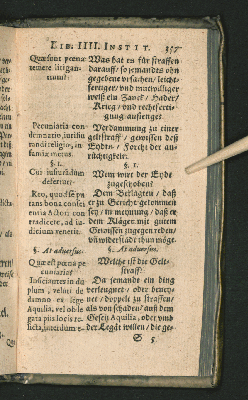 LIB. IIII. INSTIT. 357
Quæ sunt pœnæ
temere litigan-
tium?
Was hat es für straffen
darauff / so jemandts on
gegebene ursachen / leicht-
fertiger / und mutwilliger
weiß ein Zanck / Hader /
Krieg / und rechtferti-
gung anfienget
Pecuniaria con-
demnatio, iurisiu-
randi religio, in-
famiæ metus.
Verdammung in einer
geltstraff / gewissen deß
Eydts / Forcht der an-
rüchtigkeit.
§. 1.
Cui iusiurandum
defertur?
§. 1.
Wem wirt der Eyde
zugeschoben?
Reo, quod se pu-
tans bona consci-
entia Actori con-
tradicere, ad iu-
dicium venerit.
Dem Beklagten / daß
er zu Gericht gekommen
sey / in meynung / daß er
dem Kläger mit gutem
Gewissen zugegen reden /
un widerstadt thun möge.
§. At aduersus.
Quæ est pœna pe-
cuniaria?
§. At aduersus.
Welche ist die Gelt-
straff?
Inficiantes in du-
plum, veluti de
damno ex lege
Aquilia, vel ob le-
gata piis locis re-
licta, interdum e-
Da jemandt ein ding
verleugnet / oder beney-
net / doppelt zu straffen /
als von schaden / auß dem
Gesetz Aquilia / oder von
der Legat willen / die ge-
S 5